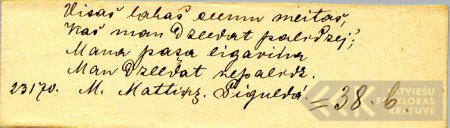 Visas labas ciema meitas,
Kas man dzeedat palihdzej';
Mana paşa ligaviņa
Man dzeedat nepalihdz.
23170. M. Mattisş. Siguldâ = 38. 6.
LATVIEŠU
FOLKLORAS
KRĀTUVE